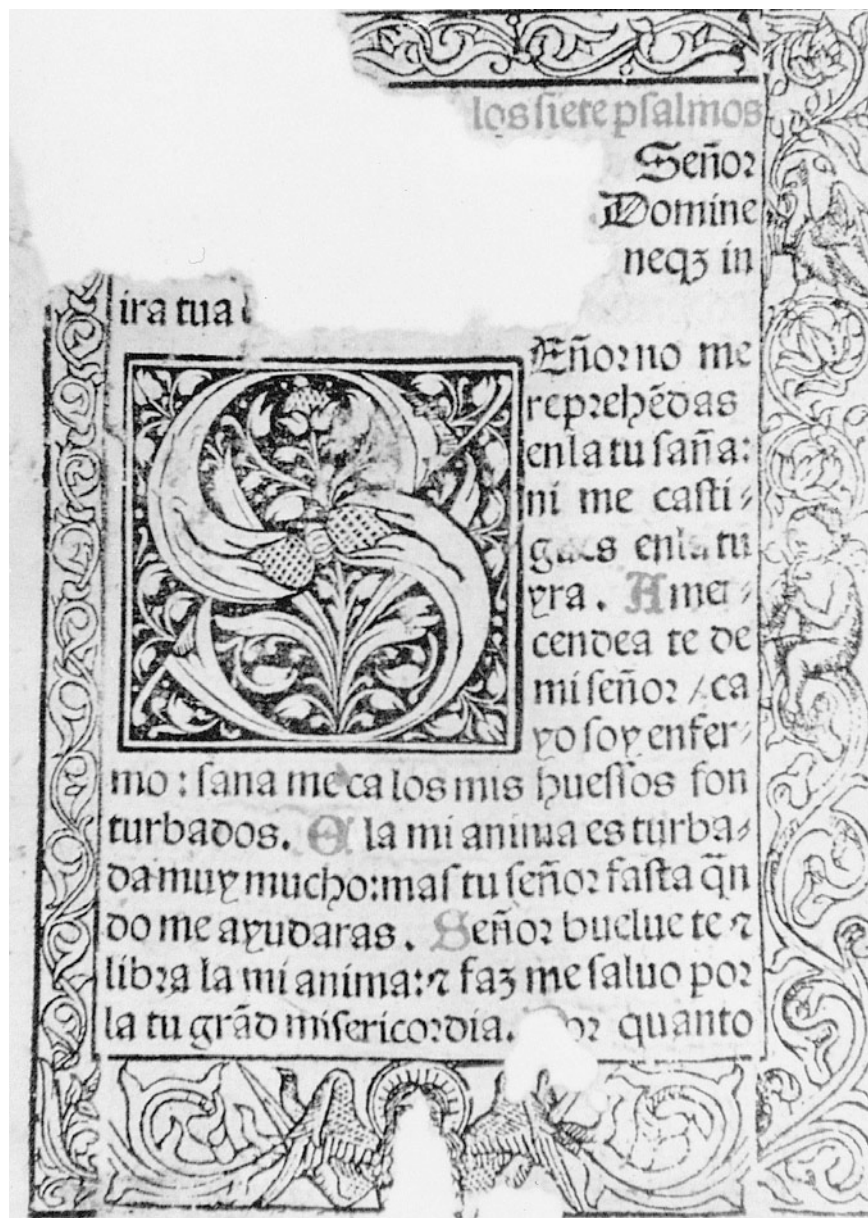 los siete psalmos
Señor
Domine
neqȝ in
ira tua
SEñor no me
reprehẽdas
enla tu saña:
ni me casti-
gues enla tu
yra. Amer-
cendea te de
mi señor / ca
yo soy enfer-
mo: sana me ca los mis huessos son
turbados. E la mi anima es turba-
da muy mucho: mas tu señor fasta qñ
do me ayudaras. Señor buelue te ⁊
libra la mi anima: ⁊ faz me saluo por
la tu grãd misericordia. Por quanto